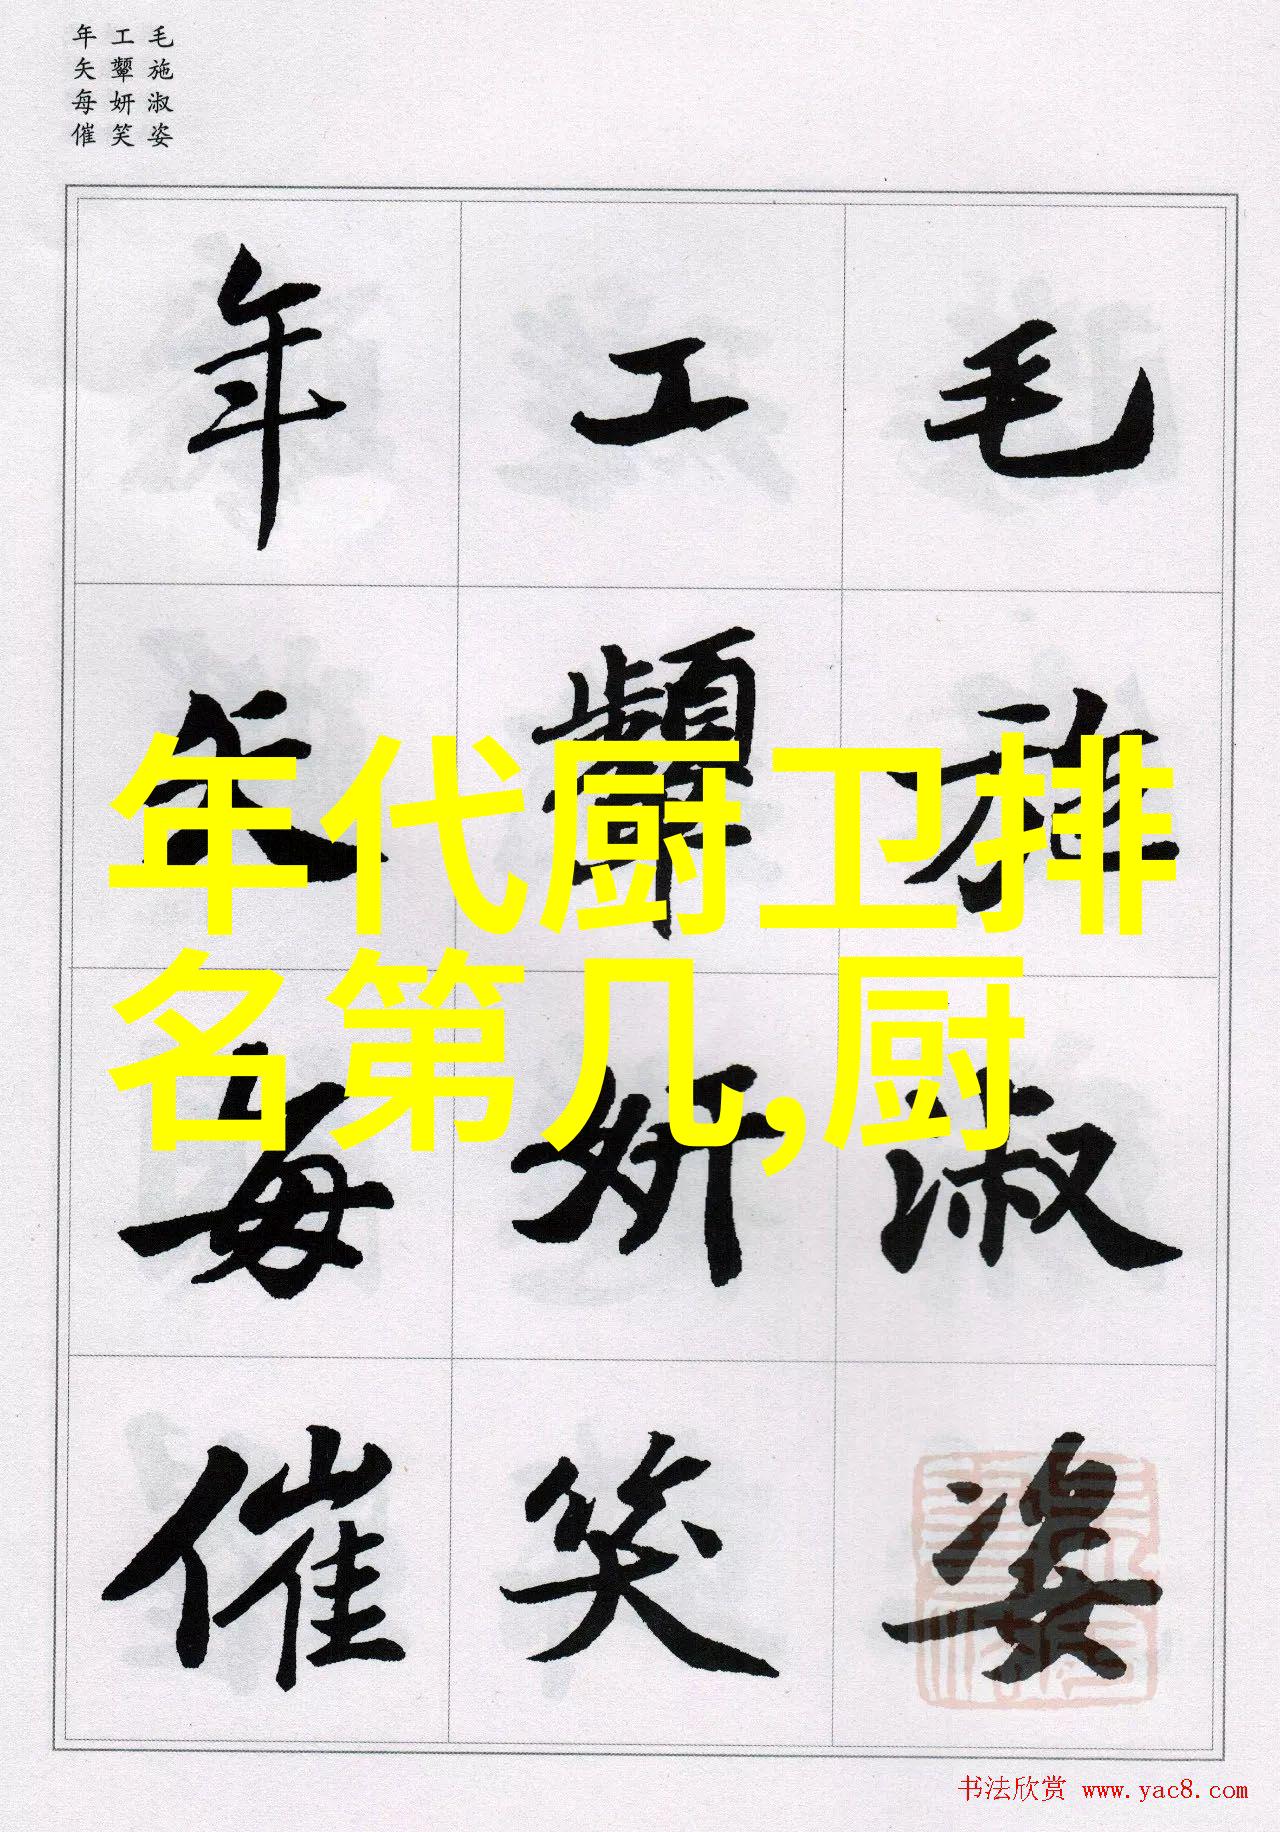 毛施淑姿
工颦妍笑
年矢每催
毛施淑姿
工颦妍笑
年矢每催
年代厨卫排
名第几,厨
书法欣赏 www.yac8.com